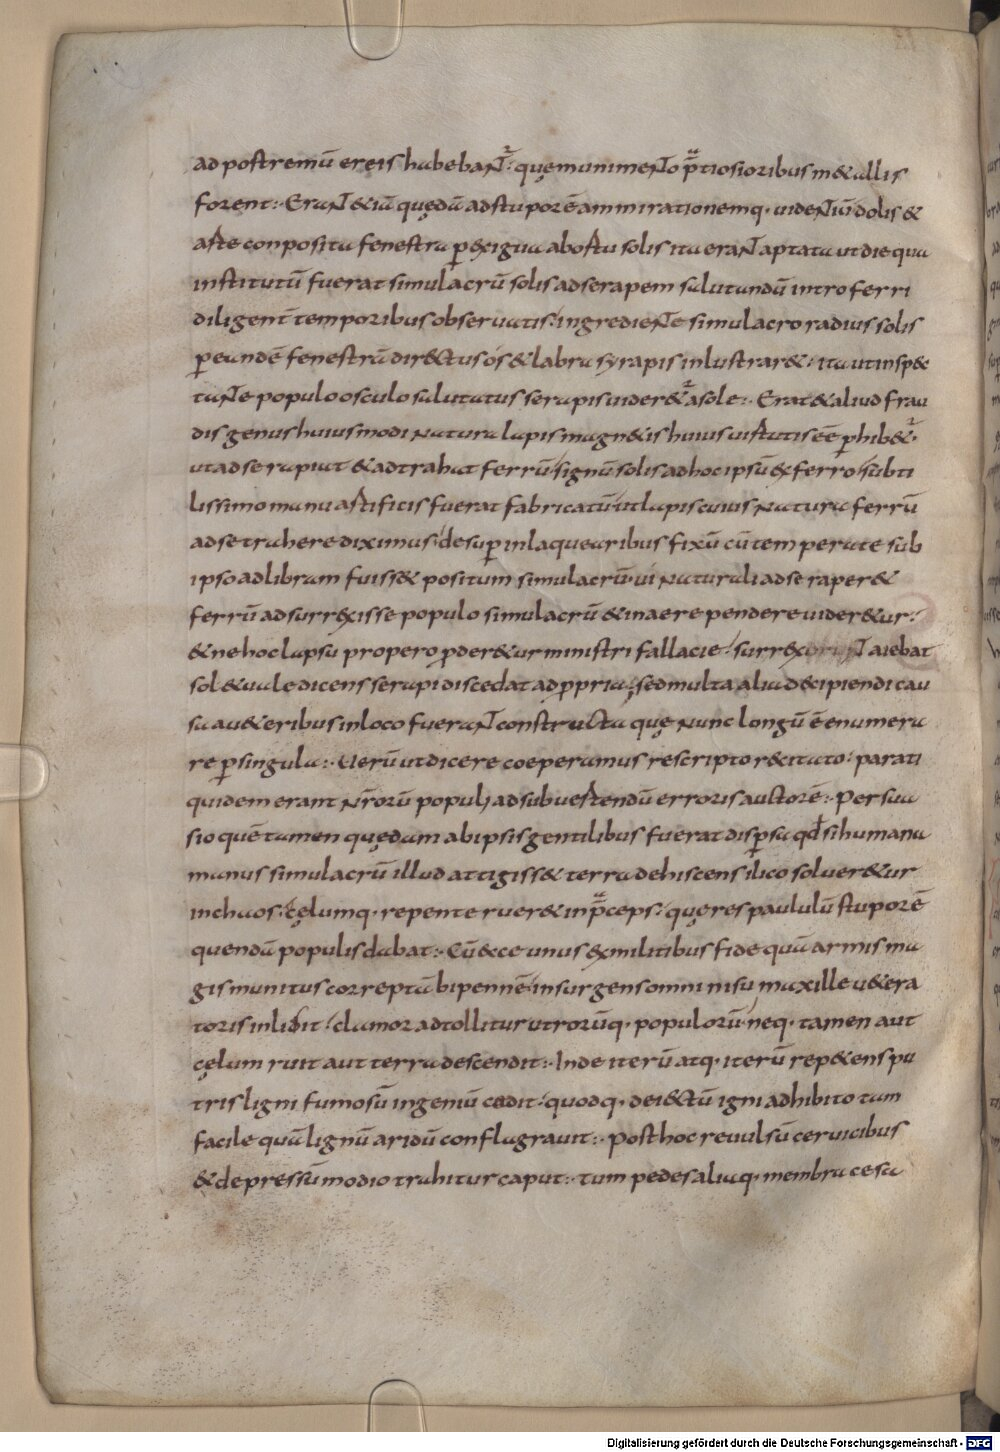 ad postremū ereis habebaNt᷑: quę munimeNto p̄tiosioribus m&allis
forent:· EraNt &iā quędā ad stuporē ammirationemq· uideNtiū dolis &
arte conposita fenestra p̱exigua ab ortu solis ita eraNt aptata ut die qua
institutū fuerat simulacrū solis ad serapem salutandū intro ferri
diligent̄ temporibus obseruatis· ingredieNte simulacro radius solis
p̱ eandē fenestrā dir&ctus os & labra syrapis inlustrar&· ita ut insp&c
taNte populo osculo salutatus serapis uider&᷑ a sole:· Erat & aliud frau
dis genus huiusmodi natura lapis magn&is huius uirtutis eē p̱hib&᷑·
ut ad se rapiat & adtrahat ferrū/ signū solis ad hoc ipsū ex ferro/ subti
lissimo manu artificis fuerat fabricatū/ ut lapis cuius natura ferrū
ad se trahere diximus· desup̱ in laquearibus fixū cū temperate sub
ipso ad libram fuiss& positum simulacrū· ui naturali ad se raper&
ferrū adsurrexisse populo simulacrū & in aere pendere uider&ur:
& ne hoc lapsu propero p̱der&ur ministri fallacie/ surrex aiebat
sol & uale dicens serapi discedat ad p̱pria; sed multa alia d&cipiendi cau
sa a u&eribus in loco fueraNt constructa quę nunc longū ē enumera
re p̱ singula:· Uerū ut dicere coeperamus rescripto r&citato· parati
quidem erant nr̄orū populi ad subuertendū erroris auctorē:· Persua
sio quē tamen quędam ab ipsis gentilibus fuerat disp̱sa qd̄ si humana
manus simulacrū illud attigiss& terra dehiscens ilico soluer&ur
in chaos· cęlumq· repente ruer& in p̄ceps: quę res paululū stuporē
quendā populis dabat:· Cū &cce unus ex militibus fide quā armis ma
gis munitus correptā bipennē/ insurgens omni nisu maxille u&era
toris inlidit/ clamor adtollitur utrorūq· populorū/ neq· tamen aut
cęlum ruit aut terra descendit:· Inde iterū atq· iterū rep&ens pu
tris ligni fumosū ingeniū cedit· quodq· dei&ctū igni adhibito tam
facile quā lignū aridū conflagrauit:· Post hoc reuulsū ceruicibus
& depressū modio trahitur caput:· tum pedes aliaq· membra cesa
Digitalisierung gefördert durch die Deutsche Forschungsgemeinschaft - DFG